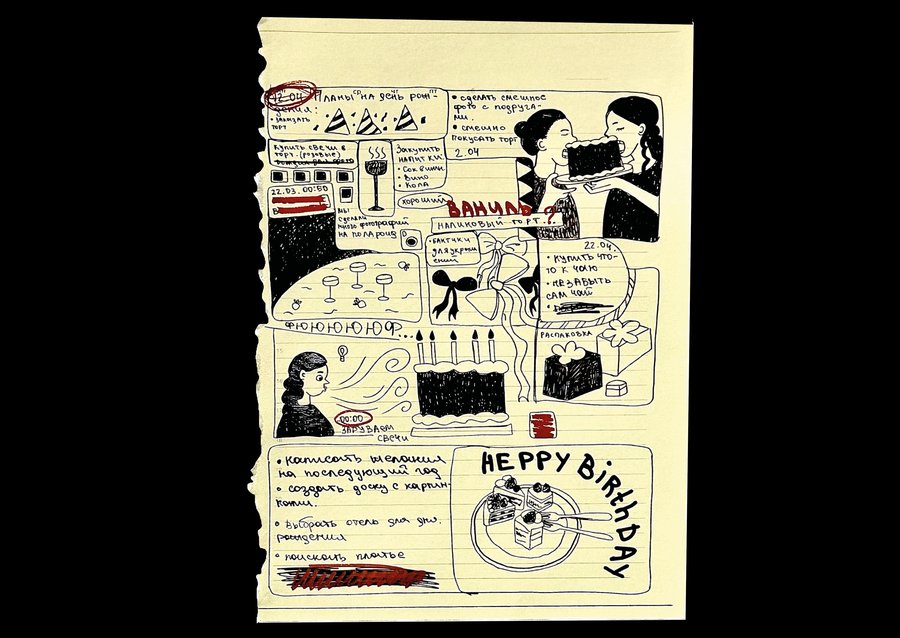 12.04 Планы на день рож-
ср чт пт
дения:
• заказать
торт
• сделать смешное
фото с подруга-
ми.
• смешно
покусать торт
2.04
Купить свечи в
торт. (розовые)
Закупить
напитки:
• Сок вишн.
• Вино
• Кола
хороший
22.03. 00:50
Мы
сделали
много фотографий
на полароид
ВАНИЛЬ?
НАЛИКОВЫЙ ТОРТ.
• Бантики
для украш
ений
22.04.
• Купить что-
то к чаю
• Не забыть
сам чай
РАСПАКОВКА
ФЮЮЮЮЮФ...
00:00
ЗАДУВАЕМ
СВЕЧИ
• Написать желания
на последующий год
• создать доску с картин-
ками.
• выбрать отель для дня.
рождения
• поискать платье
HEPPY BIRTHDAY